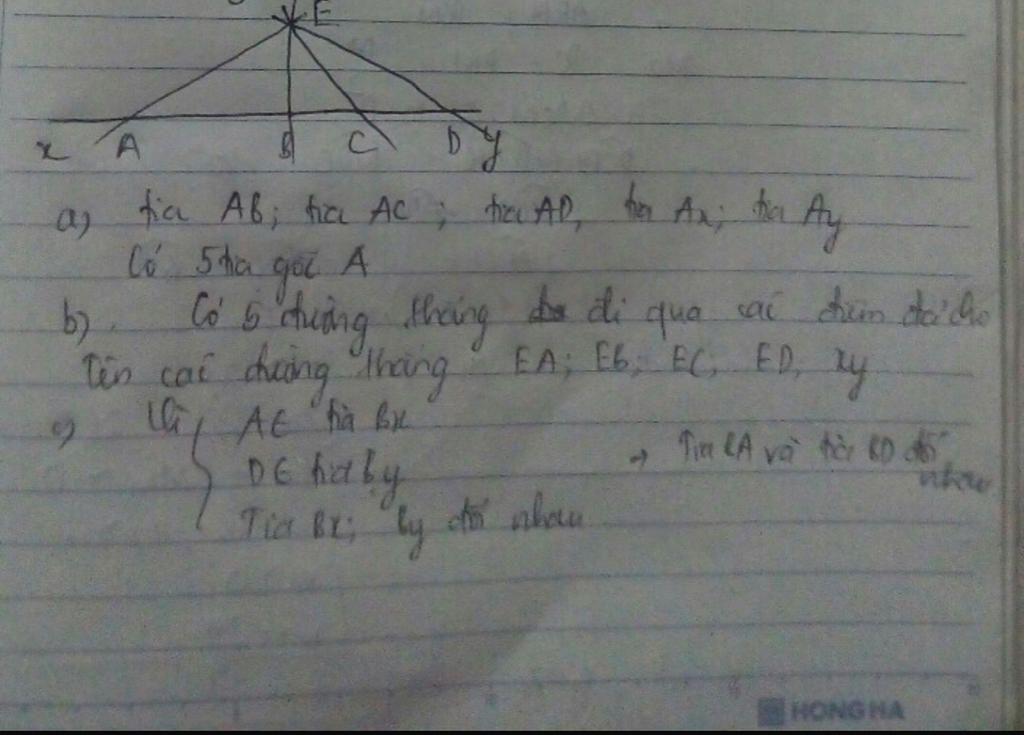 E
x A B C D y
a) tia AB; tia AC; tia AD, tia Ax; tia Ay
Có 5 tia gốc A
b). Có 5 đường thẳng đi qua các điểm đã cho
Tên các đường thẳng EA; EB; EC; ED, xy
c) Vì A ∈ tia Bx
D ∈ tia By → Tia BA và tia BD đối nhau
Tia Bx; By đối nhau
HONG HA